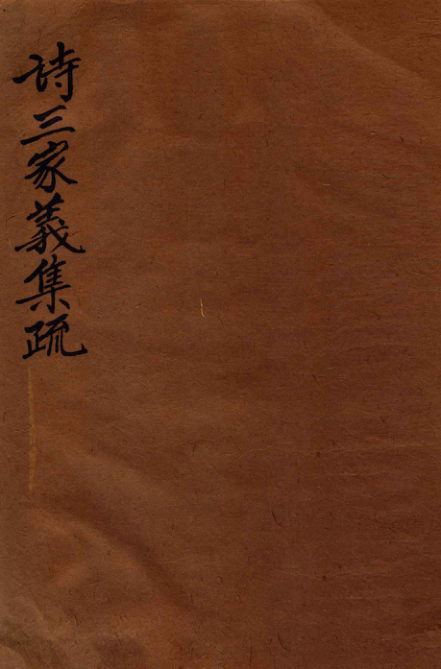 诗三家義集疏